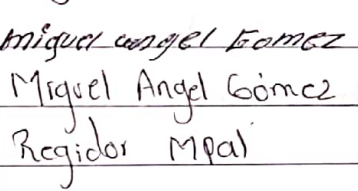 miguel angel Gomez
Miguel Angel Gómez
Regidor Mpal